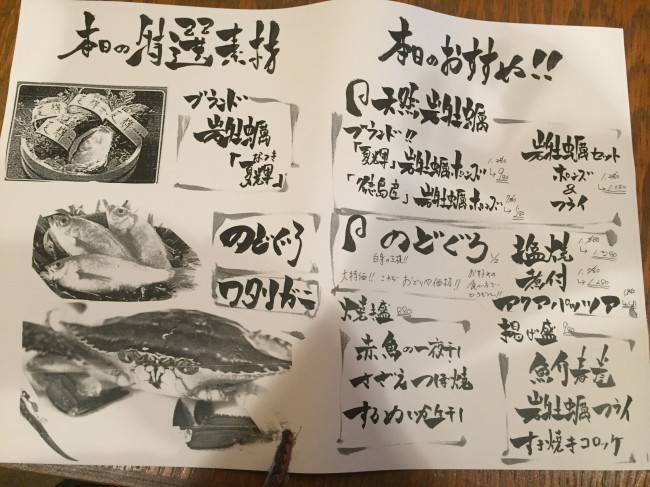 本日の特選素材
ブランド
岩牡蠣
「夏輝」
のどぐろ
ワタリガニ
本日のおすすめ!!
天然岩牡蠣
ブランド!!
「夏輝」岩牡蠣ポン酢
「徳島産」岩牡蠣ポン酢
岩牡蠣セット
ポン酢
&
フライ
のどぐろ 1/2
白身の王様!!
大特価!!
お好みの
食べ方で
塩焼
煮付
アクアパッツァ
焼き盛
赤魚の一夜干
さざえつぼ焼
するめいか一夜干
揚げ盛
魚介春巻
岩牡蠣フライ
すき焼きコロッケ